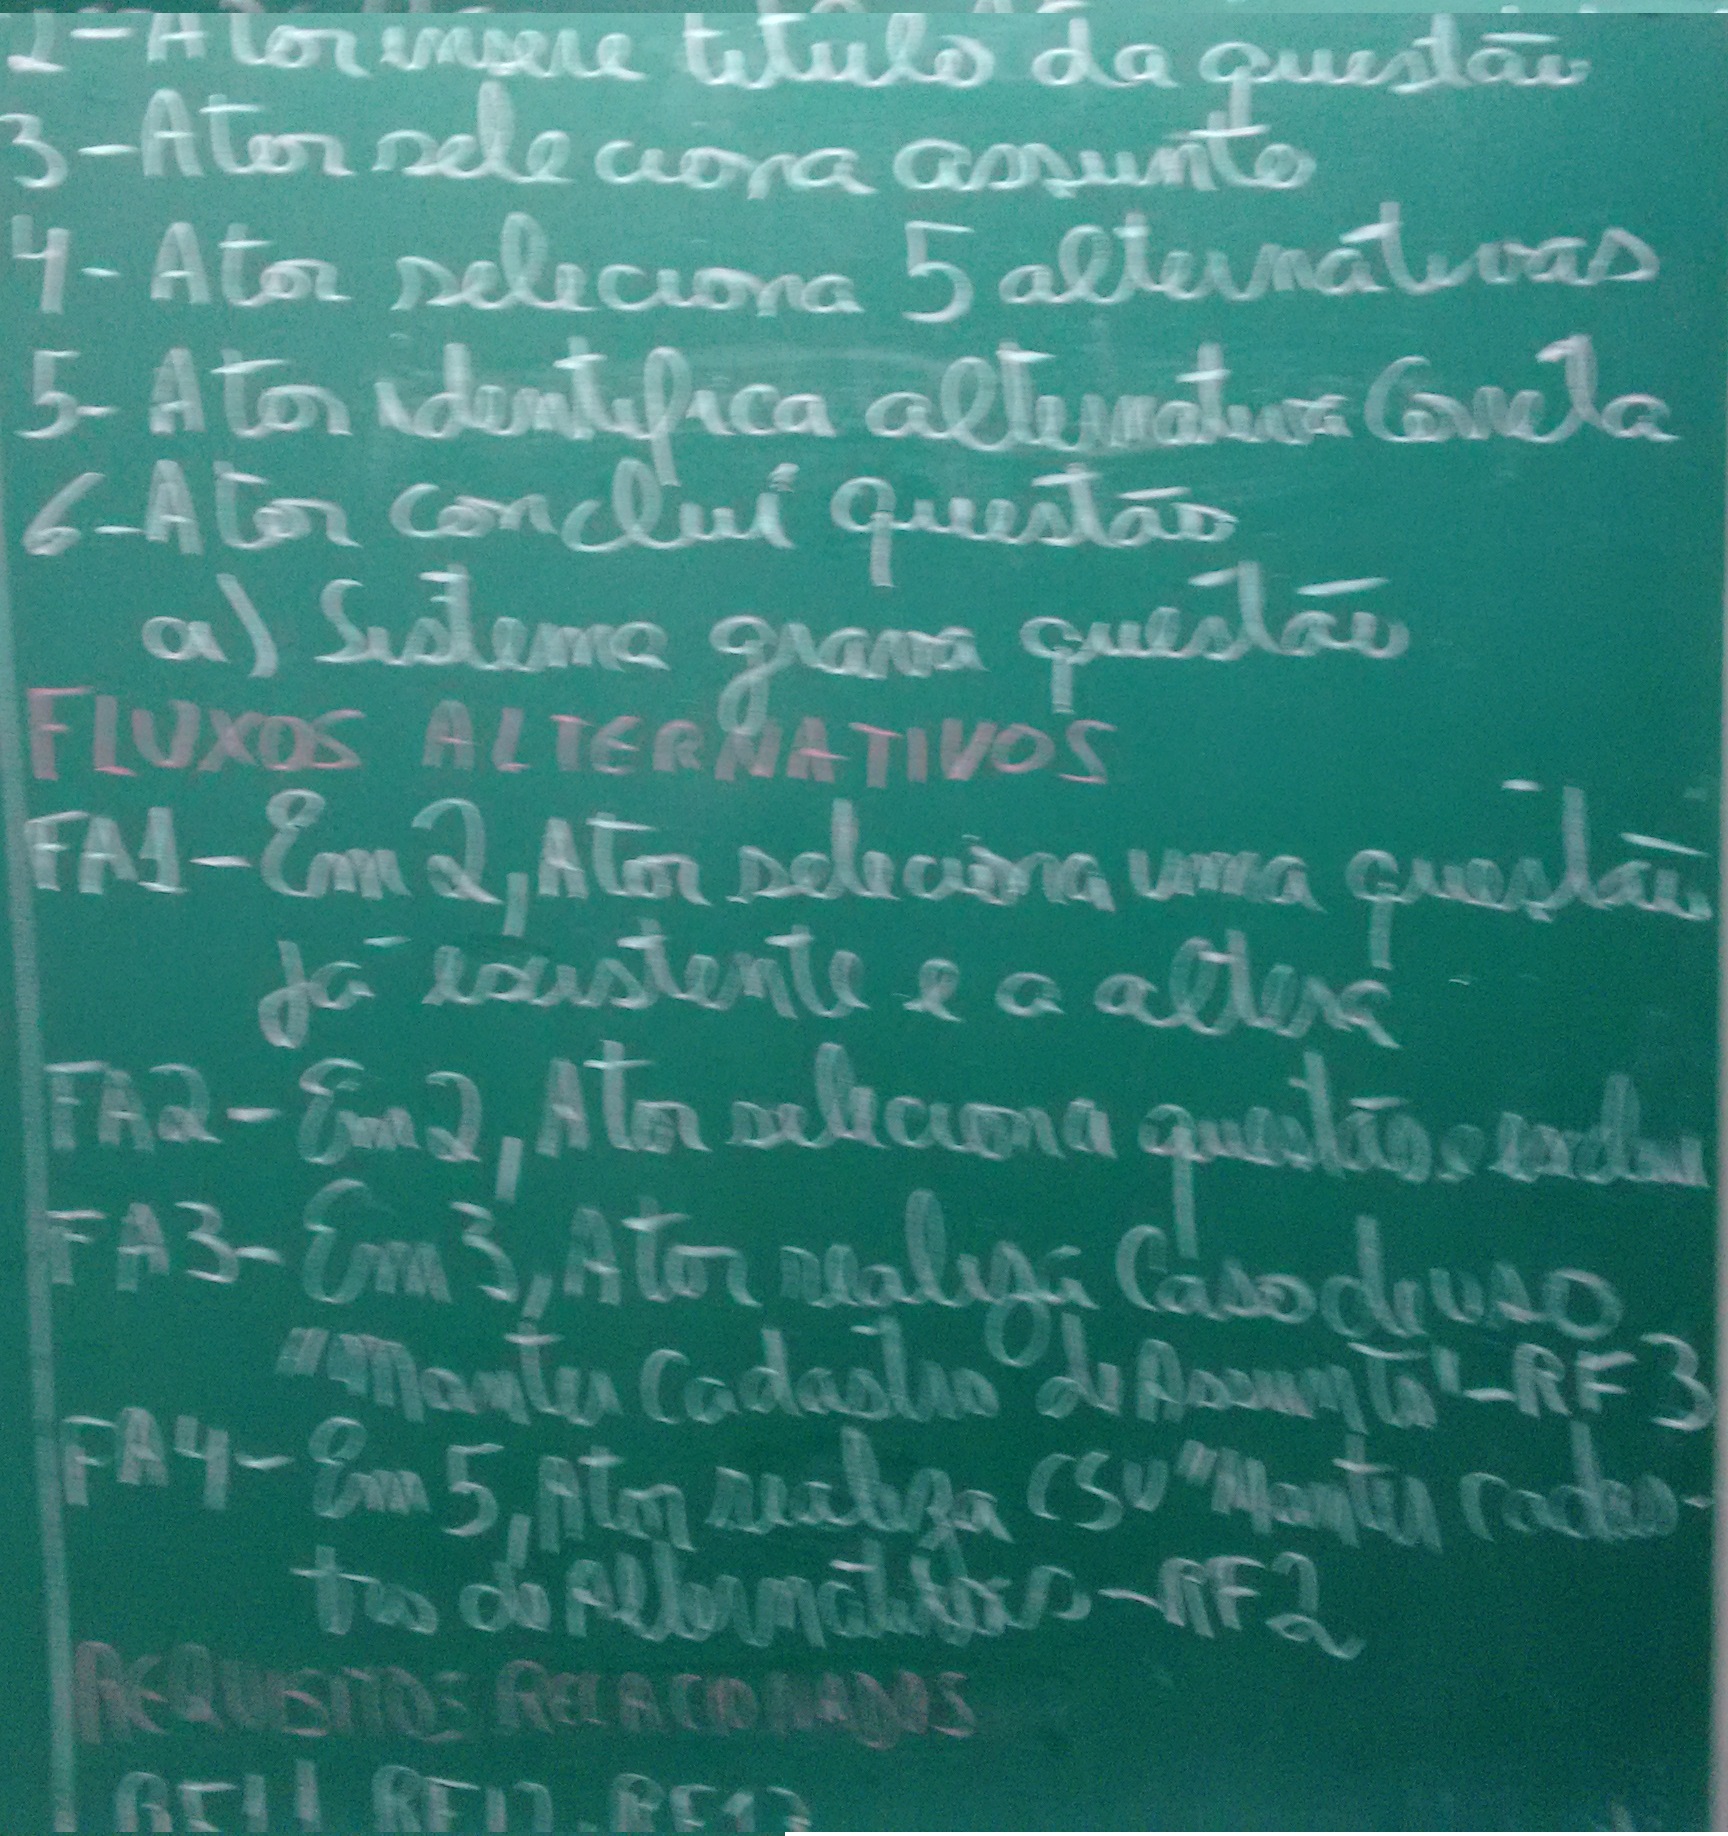 2-Ator insere titulo da questão
3-Ator seleciona assunto
4-Ator seleciona 5 alternativas
5-Ator identifica alternativa Correta
6-Ator conclui questão
a) Sistema grava questão
FLUXOS ALTERNATIVOS
FA1-Em 2, Ator seleciona uma questão
já existente e a altera
FA2-Em 2, Ator seleciona questão e
FA3-Em 3, Ator realiza Caso de uso
"Manter Cadastro de Assunto"-RF3
FA4-Em 5, Ator realiza CSU "Manter Cadas-
tro de Alternativas-RF2
REQUISITOS RELACIONADOS